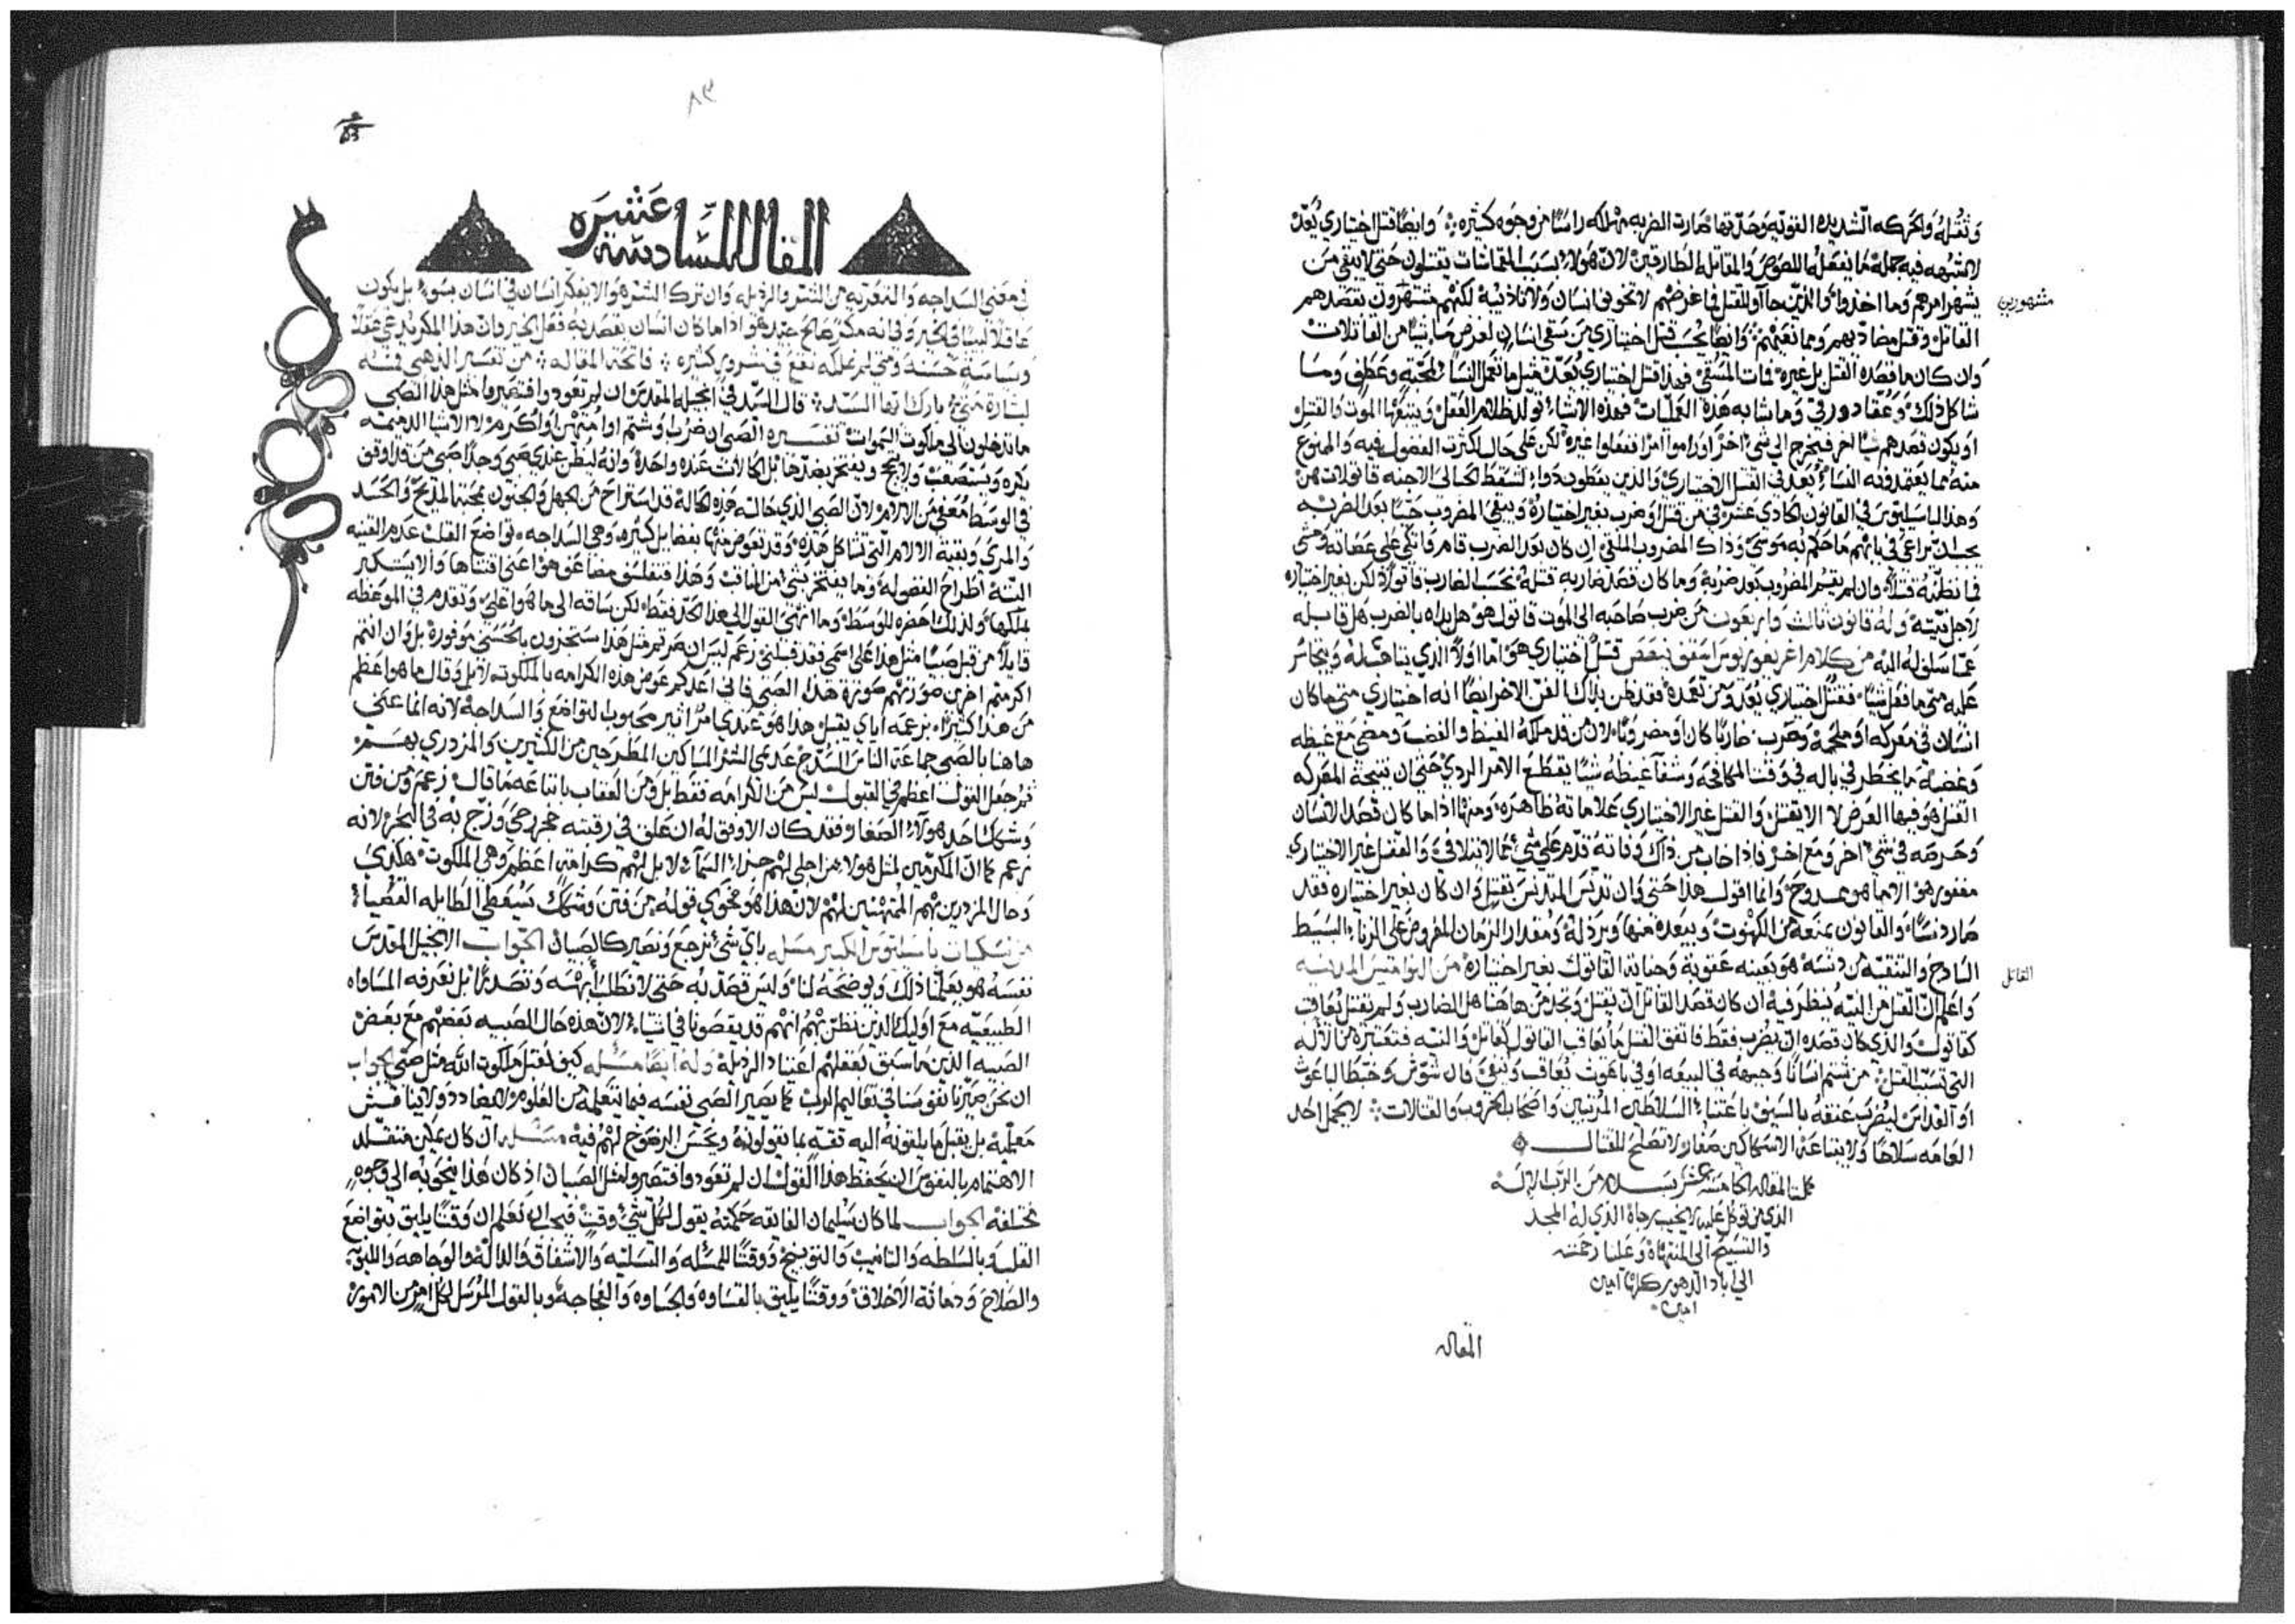 وثقله والحركه الشديده القويه وحدتها صارت الضربه مهلكه راسًا من وجوه كثيره وايضًا قتل اختياري يُعدّ
لا شبهه فيه جملة ما يفعله اللصوص والمقاتله الطارقين لان هولاء بسبب القماشات يقتلون حتى لا يبقى من
يشهر امرهم وما اخذوا والذين جاآو للقتل فما غرضهم لا تخويف انسان ولا تاذيبه لكنهم مشتهرون بقصدهم
مشهورين
القاتل وايضًا يجب قتل اختياري من سقى انسان لغرض ما شيًا من القاتلات
وان كان ما قصده القتل بل غيره فمات المسقي فهذا قتل اختياري يُعدّ مثل ما تعمل النسا لمحبّه وعطف وما
شاكل ذلك وما شابه هذه العمليات فهذه الاشياء تولد ظلام العقل ويتبعها الموت والقتل
او يكون قصدهم شيًا اخر فيخرج الى شي اخر او راموا امرًا ففعلوا غيره لكن على حال اكثرت الفضول فيه والممنوع
منه مما يعتمدونه النساء يُعد في القتل الاختياري والذين يعطون دواء لتسقط الحبالى الاجنه قاتولات هنّ
وهذا لباسيليوس في القانون الحادي عشر في من قتل او ضرب بغير اختياره ويبقى المضروب حيًا بعد الضربه
يجب ان يراعى في بابهم ما حكم به موسى وذاك المضروب الملقى ان كان بعد الضرب قام فاتكى على عصاته ومشى
فما نظنّه قتلاً وان لم يقم المضروب بعد ضربه وما كان قصد ضاربه قتله نحسب الضارب قاتولاً لكن بغير اختياره
لاجل نيّته وله قانون ثالث واربعون من ضرب صاحبه الى الموت قاتول هو هل بداه بالضرب هل قابله
عمّا سلف له اليه من كلام اغريغوريوس اسقف قتل اختياري هو اما اولاً الذي يتاهب له ويتجاسر
عليه متى ما فعل شيًا فقتل اختياري يُعد ومن تعمده فقد ظن بذلك الفن الاخر ايضًا انه اختياري متى ما كان
انسان في معركه او ملحمه وضرب ضاربًا كان او مضروبًا لان من قد ملكه الغيظ والغضب ومضى مع غيظه
وغضبه ما يخطر في باله في وقت المكافحه وشفآ غيظه شيًا يقطع الامر الردي حتى ان نتيجة المعركه
القتل هو فيها الغرض لا الا يقتل والقتل غير الاختياري علاماته ظاهره ومنها اذا ما كان قصد الانسان
وحرصه في شي اخر ومع اخر فاذا خاب من ذاك وفاته قدم على شي مما لا يتلافى والقتل غير الاختياري
مغفور هو الا ما هو ممدوح وانما اقول هذا حتى وان تدنّس المدنس بقتل وان كان بغير اختياره فقد
صار دنسًا والقانون يمنعه من الكهنوت ويبعده منها ويرذله ومقدار الزمان المفروض على الزناء البسيط
الساذج والتنقيه من دنسه هو بعينه عقوبة وجناية القاتول بغير اختياره من النواميس المدنيه
القاتل
واعلم انّ القتل من النيه ينظر فيه ان كان قصد القاتل ان يقتل وتجد من هاهنا هل الضارب ولم يقتل يُعاقب
كقاتول والذي كان قصده ان يضرب فقط فاتفق القتل ما يُعاقب القاتول كقاتل والنيه فتعتبر من الاله
التي تسبّب القتل من شتم انسانًا وجبهه في البيعه او في باعوث يُعاقب ويُنفى فان شوّش وخبّط الباعوث
او القداس ليضرب عنقه بالسيف باعتناء السلاطين المرتبين واصحاب الحروب والقتالات لا يحمل احد
العامه سلاحًا ولا يبتاعه الا سكاكين صغار لا تصلح للقتال
كملت المقاله الخامسه عشر بسلام من الرب الاله
الذي من توكل عليه لا يخيب رجاه الذي له المجد
والتسبيح الى المنتهاه وعلينا رحمته
الى اباد الدهور كلها امين
امين
المقاله
٨٣
83
المقاله السادسة عشره
في معنى السذاجه والتعرّيه من الشر والرذيله وان ترك الشر هو الا يفكر انسان في انسان بسوء بل يكون
عاقلاً لبيبًا في الخير وفي انه مكر صالح عتيد هو اذا ما كان انسان يقصد به فعل الخير وان هذا المكر يدعى عقلاً
وسياسة حسنة ومن لم يملكه يقع في شرور كثيره فاتحة المقاله من تفسير الذهبي فمه
لبشارة متى بارك ايها السيّد قال السيّد في انجيله المقدس ان لم تعودوا فتصيروا مثل هذا الصبي
ما تدخلون الى ملكوت السموات تفسيره الصبي ان ضرب او شتم او امتهن او اكرم لا
يكره ويستصعب ولا يبجح ويفتخر بضدّها بل الحالات عنده واحدة وانه ليظن عندي صبي وجدًا صبي من قد اوقف
في الوسط مُعفى من الالام لان الصبي الذي حالته هذه الحاله قد استراح من الجهل والجنون بمحبة المديح والحسد
والمرى وبقية الالام التي تشاكل هذه وقد تعوض منها بفضايل كثيره وهي السذاجه تواضع القلب عدم القنيه
البتة اطراح الفضوله وما يفتخر بشي من المناقب وهذا فتفلسف مضاعف هو اعني اقتناها والا يستكبر
بملكها ولذلك احضره للوسط وما انتهى القول الى هذا الحد فقط لكن ساقه الى ما هو اعلى وتقدم في الموعظه
قايلاً من قبل صبيًا مثل هذا على اسمي فقد قبلني زعم ليس ان صرتم مثل هذا ستجزون بالحسنى موفورة بل وان انتم
اكرمتم اخرين صورتهم صورة هذا الصبي فاني اعد لكم عوض هذه الكرامه بالملكوت لا بل وقال ما هو اعظم
من هذا كثيرًا بزعمه اياي يقبل هذا هو عندي مُؤاثير محبوب التواضع والسذاجه لانه انما عنى
هاهنا بالصبي جماعة الناس السُذّج عدمى الشر المساكين المطرحين من الكثيرين والمزدري بهم
ثم جعل القول اعظم في القبول ليس من الكرامه فقط بل ومن العقاب باتباعه ما قال زعم ومن فتن
وشكك احد هولاء الصغار فقد كان الاوفق له ان علق في رقبته حجر رحى وزجّ به في البحر لانه
زعم كما ان المكرمين لمثل هولاء من اجلي لهم جزاء السماء لا بل لهم كرامة اعظم وهي الملكوت هكذى
وحال المزدرين بهم الممتهنين لهم لان هذا هو فحوى قوله من فتن وشكك يسقط الطايله القُصيا
من نسكيات باسيليوس الكبير مسله باي شي نرجع ونصير كالصبيان الجواب الانجيل المقدس
نفسه هو يعلّمنا ذلك ويوضحه لنا وليس قصده به حتى لا نطلب ابهه ونصدرًا بل نعرف المساواه
الطبيعيّه مع اوليك الذين نظن بهم انهم قد ينقصونا في اشياء لان هذه حال الصبيه بعضهم مع بعض
الصبيه الذين ما سبق يعقلهم اعتياد الرذيله وله ايضًا مسله كيف نقبل ملكوت الله مثل صبي الجواب
ان نحن صيّرنا نفوسنا في تعاليم الرب كما يصير الصبي نفسه فيما يتعلمه من العلوم لا يضادد ولا يناقش
معلميه بل يقبل ما يلقونه اليه ثقة بما يقولونه ويحسن الرضوخ لهم فيه مسله ان كان يمكن متقلّد
الاهتمام بالنفوس ان يحفظ هذا القول ان لم تعودوا فتصيروا مثل الصبيان اذ كان هذا ينحو به الى وجوه
مختلفه الجواب لما كان سليمان الفايقه حكمته يقول لكل شي وقت فيجب ان نعلم ان وقتًا يليق بتواضع
القلب وبالسلطه والتانيب والتوبيخ ووقتًا للمسله والتسليه والاشفاق والداله والوجاهه
والصلاح ودماثة الاخلاق ووقتًا يليق بالقساوه والجساوه والفجاجه وبالقول المُرسل لكل امر من الامور